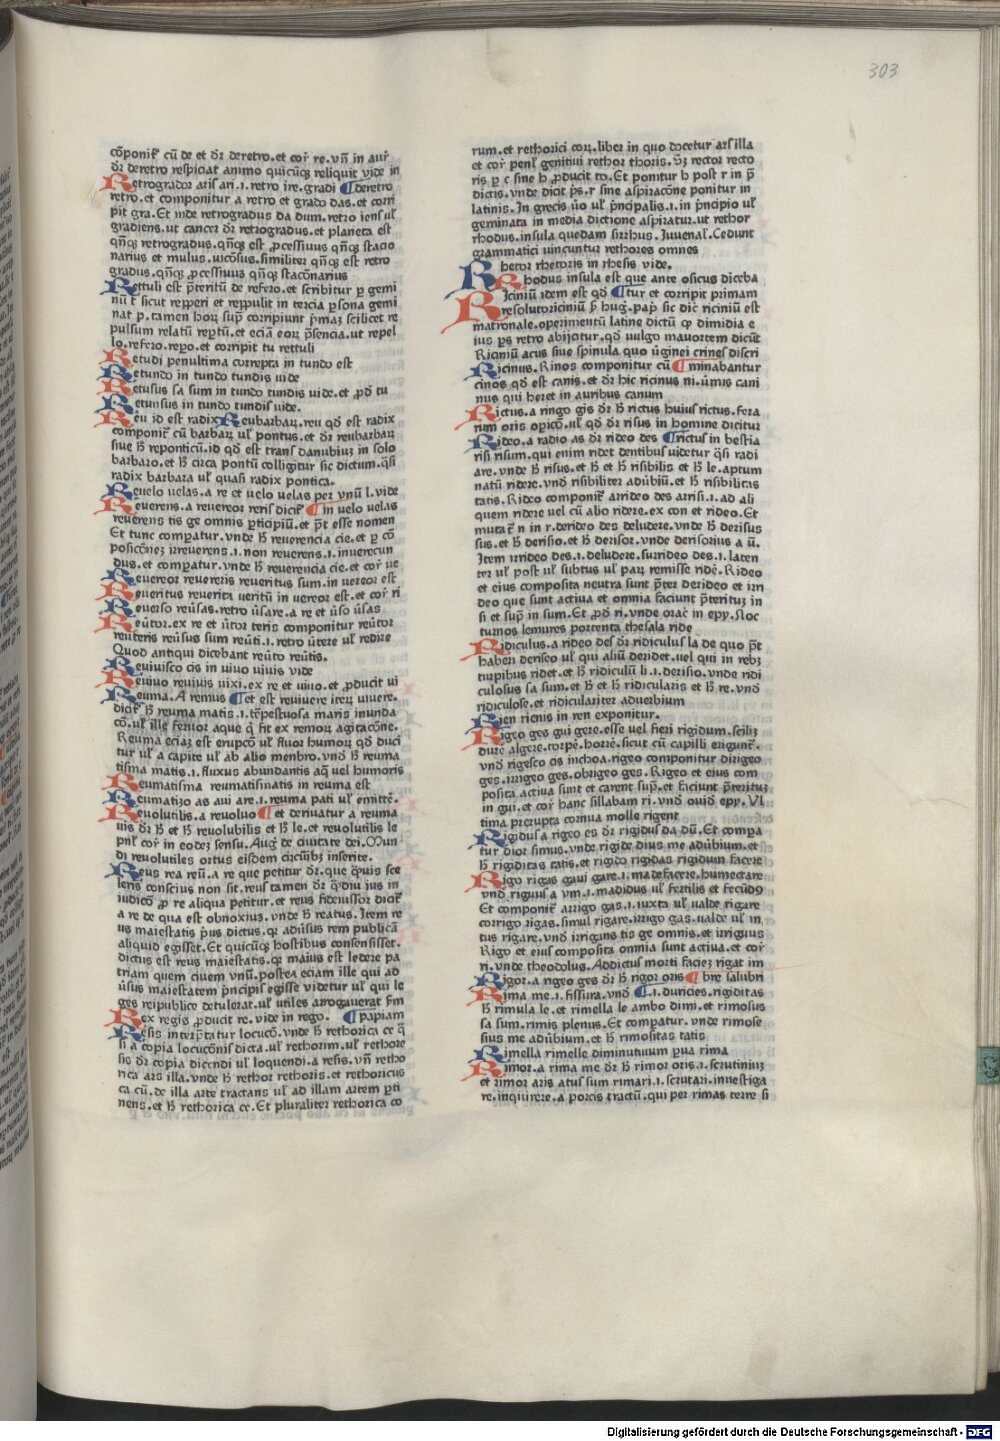 303
cōponit᷑ cū de et dr̄ deretro. et cor̄ re. vn̄ in aur̄
dr̄ deretro respiciat animo quicūqꝫ reliquit vide in
Retrogrador aris ari .i. retro ire. gradi ¶ deretro
retro. et componitur a retro et grado das. et corri
pit gra. Et inde retrogradus da dum. retro iens ul̄
gradiens. ut cancer dr̄ retrogradus. et planeta est
qn̄qꝫ retrogradus. qn̄qꝫ est ꝓcessiuus qn̄qꝫ stacio
narius et mulus. uicōsus. similiter qn̄qꝫ est retro
gradus. qn̄qꝫ ꝓcessiuus qn̄qꝫ stacōnarius
Rettuli est p̄teritū de refero. et scribitur ꝑ gemi
nū t sicut repperi et reppulit in tercia ꝑsona gemi
nat p. tamen hoꝝ sup̄ corripiunt p̄maꝫ scilicet re
pulsum relatū reptū. et eciā eoꝝ p̄sencia. ut repel
lo. refero. repo. et corripit tu rettuli
Retudi penultima correpta in tundo est
Retundo in tundo tundis uide
Retusus sa sum in tundo tundis uide. et ꝓd tu
Retunsus in tundo tundis uide.
Reu id est radix Reubarbaꝝ. reu qd̄ est radix
componit᷑ cū barbaꝝ ul̄ pontus. et dr̄ reubarbaꝝ
siue h̄ reponticū. id qd̄ est trans danubiuꝫ in solo
barbaro. et h̄ circa pontū colligitur sic dictum. q̄si
radix barbara ul̄ quasi radix pontica.
Reuelo uelas. a re et uelo uelas per vnū l. vide
Reuerens. a reuereor reris dicit᷑ ¶ in uelo uelas
reuerens tis ge omnis ꝑticipiū. et p̄t esse nomen
Et tunc comꝑatur. vnde h̄ reuerencia cie. et ꝑ cō
posicōneꝫ irreuerens .i. non reuerens .i. inuerecun
dus. et comꝑatur. vnde h̄ reuerencia cie. et cor̄ ue
Reuereor reuereris reueritus sum. in uereor est
Reueritus reuerita ueritū in uereor est. et cor̄ ri
Reuerso reūsas. retro ūsare. a re et ūso ūsas
Reūtor. ex re et ūtor teris componitur reūtor
reuteris reūsus sum reūti .i. retro ūtere ul̄ redire
Quod antiqui dicebant reūto reūtis.
Reuiuisco cis in uiuo uiuis vide
Reuiuo reuiuis uixi. ex re et uiuo. et ꝓducit ui
Reuma. A remus ¶ et est reuiuere iteꝝ uiuere.
dicit᷑ h̄ reuma matis .i. tēpestuosa maris inunda
cō. ul̄ ille feruor aque q̄ fit ex remoꝝ agitacōne.
Reuma eciaꝫ est erupcō ul̄ fluor humoꝝ qd̄ duci
tur ul̄ a capite ul̄ ab alio menbro. vnd̄ h̄ reuma
tisma matis .i. fluxus abundantis aq̄ uel humoris
Reumatisma reumatismatis in reuma est
Reumatizo as aui are .i. reuma pati ul̄ emittē.
Reuolutilis. a reuoluo ¶ et deriuatur a reuma
uis dr̄ h̄ et h̄ reuolubilis et h̄ le. et reuolutilis le
pnl̄ cor̄ in eodeꝫ sensu. Aug᷑ de ciuitate dei. Mun
di reuolutiles ortus eisdem circuūbꝫ inserite.
Reus rea reū. a re que petitur dr̄. que q̄uis sce
leris conscius non sit. reus tamen dr̄ q̄diu ius in
iudicō ꝓ re aliqua petitur. et reus fideiussor dicit᷑
a re de qua est obnoxius. vnde h̄ reatus. Item re
us maiestatis p̄us dictus. qꝛ adūsus rem publicā
aliquid egisset. Et quicūqꝫ hostibus consensisset.
dictus est reus maiestatis. qꝛ maius est ledere pa
triam quem ciuem vnū. postea eciam ille qui ad
ūsus maiestatem p̄ncipis egisse videtur ul̄ qui le
ges reipublice detulerat. ul̄ utiles arrogauerat s̄m
Rex regis ꝓducit re. vide in rego. ¶ papiam
Resis interp̄tatur locucō. vnde h̄ rethorica ce q̄
si a copia locucōnis dicta. ul̄ rethorim. ul̄ rethore
sis dr̄ copia dicendi ul̄ loquendi. a resis. vn̄ retho
rica ars illa. vnde h̄ rethor rethoris. et rethoricus
ca cū. de illa arte tractans ul̄ ad illam artem ꝑti
nens. et h̄ rethorica ce. Et pluraliter rethorica co
rum. et rethorici coꝝ. liber in quo docetur ars illa
et cor̄ penl̄ genitiui rethor thoris. Sꝫ rector recto
ris ꝑ c sine h ꝓducit to. Et ponitur h post r in p̄
dictis. vnde dicit p̄s. r sine aspiracōne ponitur in
latinis. In grecis ūo ul̄ p̄ncipalis .i. in p̄ncipio ul̄
geminata in media dictione aspiratur. ut rethor
rhodus. insula quedam sirrhus. Juuenal̄. Cedunt
grammatici uincuntur rethores omnes
Rhetor rhetoris in rhesis vide.
Rhodus insula est que ante osicus diceba
Riciniū idem est qd̄ ¶ tur et corripit primam
resolutoriciniū ꝑ hug᷑. pap̄ sic dic̄ riciniū est
matronale. operimentū latine dictū qꝛ dimidia e
ius ꝑs retro abijcitur. qd̄ uulgo mauortem dicūt
Riciniū acus siue spinula quo ūginei crines discri
Ricinus. Rinos componitur cū ¶ minabantur
cinos qd̄ est canis. et dr̄ hic ricinus ni. ūmis cani
nus qui heret in auribus canum
Rictus. a ringo gis dr̄ h̄ rictus huius rictus. fera
rum oris opicō. ul̄ qd̄ dr̄ risus in homine dicitur
Rideo. a radio as dr̄ rideo des ¶ rictus in bestia
risi risum. qui enim ridet dentibus uidetur q̄si radi
are. vnde h̄ risus. et h̄ et h̄ risibilis et h̄ le. aptum
natū ridere. vnd̄ risibiliter adūbiū. et h̄ risibilitas
tatis. Rideo componit᷑ arrideo des arrisi .i. ad ali
quem ridere uel cū alio ridere. ex con et rideo. Et
mutat᷑ n in r. derideo des deludere. vnde h̄ derisus
sus. et h̄ derisio. et h̄ derisor. vnde derisorius a ū.
Item irrideo des .i. deludere. surrideo des .i. laten
ter ul̄ post ul̄ subtus ul̄ paꝝ remisse ridē. Rideo
et eius composita neutra sunt p̄ter derideo et irri
deo que sunt actiua et omnia faciunt p̄terituꝫ in
si et sup̄ in sum. Et ꝓd̄ ri. vnde orac̄ in epy. Noc
turnos lemures portenta thesala ride
Ridiculus. a rideo des dr̄ ridiculus la de quo p̄t
haberi deriseo ul̄ qui aliū deridet. uel qui in rebꝫ
turpibus ridet. et h̄ ridiculū li .i. derisio. vnde ridi
culosus sa sum. et h̄ et h̄ ridicularis et h̄ re. vnd̄
ridiculose. et ridiculariter aduerbium
Rien rienis in ren exponitur.
Rigeo ges gui gere. esse uel fieri rigidum. sciliꝫ
dure algere. torpē. horrē. sicut cū capilli erigunt᷑.
vnd̄ rigesco cis inchoa. rigeo componitur dirigeo
ges. irrigeo ges. obrigeo ges. Rigeo et eius com
posita actiua sunt et carent sup̄. et faciunt p̄terituꝫ
in gui. et cor̄ hanc sillabam ri. vnd̄ ouid̄ epy. Vl
tima prerupta cornua molle rigent
Rigidus a rigeo es dr̄ rigidus da dū. Et comꝑa
tur dior simus. vnde rigide dius me adūbium. et
h̄ rigiditas tatis. et rigido rigidas rigidum facere
Rigo rigas gaui gare .i. madefacere. humectare
vnd̄ riguus a vm .i. madidus ul̄ fertilis et fecūdꝯ
Et componit᷑ arrigo gas .i. iuxta ul̄ ualde rigare
corrigo rigas. simul rigare. irrigo gas. ualde ul̄ in
tus rigare. vnd̄ irrigans tis ge omnis. et irriguus
Rigo et eius composita omnia sunt actiua. et cor̄
ri. vnde theodolus. Addictus morti facieꝫ rigat im
Rigor. a rigeo ges dr̄ h̄ rigor oris ¶ bre salubri
Rima me .i. fissura. vnd̄ ¶ .i. duricies. rigiditas
h̄ rimula le. et rimella le ambo dimi. et rimosus
sa sum. rimis plenus. Et comꝑatur. vnde rimose
sius me adūbium. et h̄ rimositas tatis
Rimella rimelle diminutiuum ꝑua rima
Rimor. a rima me dr̄ h̄ rimor oris .i. scrutiniuꝫ
et rimor aris atus sum rimari .i. scrutari. inuestiga
re. inquirere. a porcis tractū. qui per rimas terre si
Digitalisierung gefördert durch die Deutsche Forschungsgemeinschaft - DFG